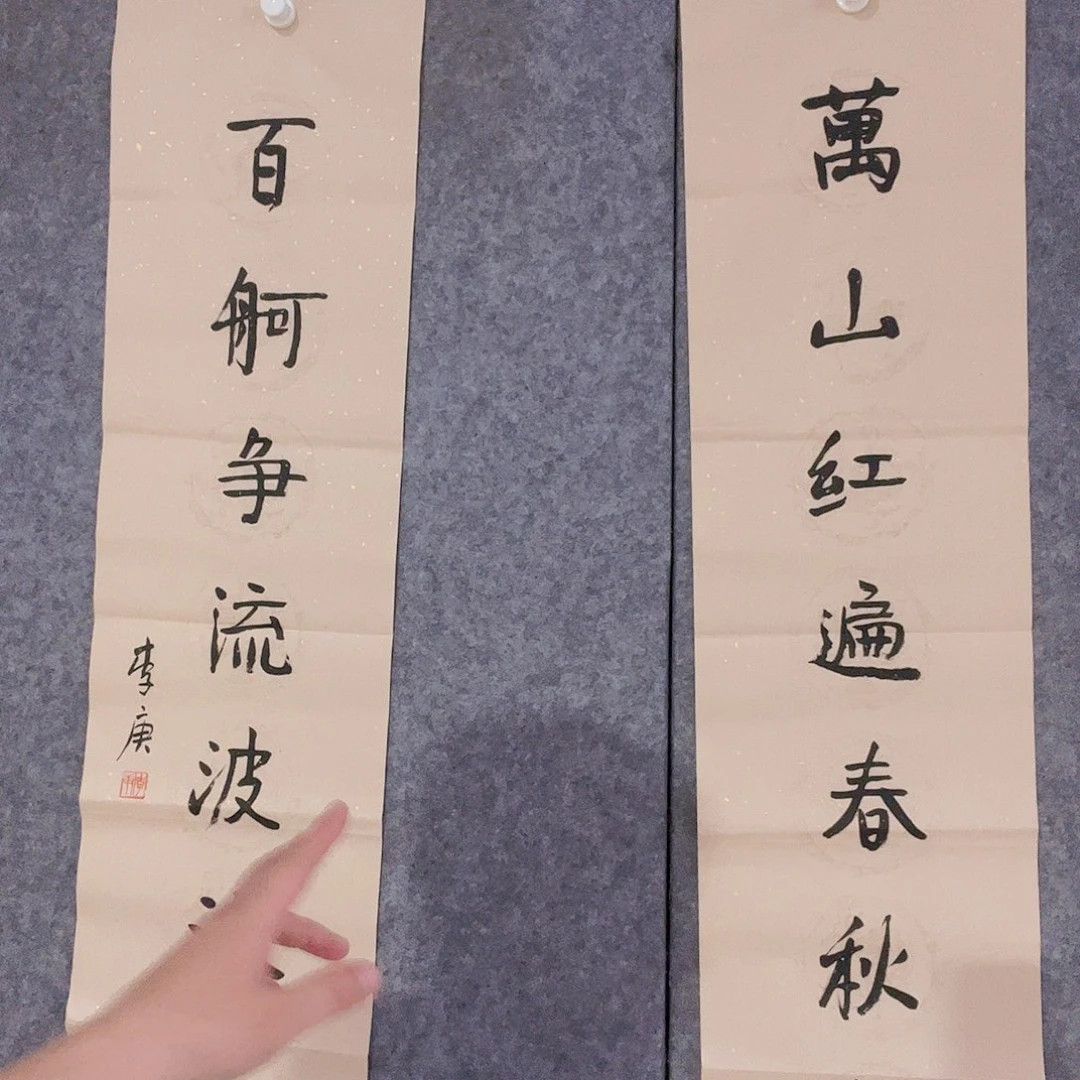 萬山红遍春秋
百舸争流波
李庚